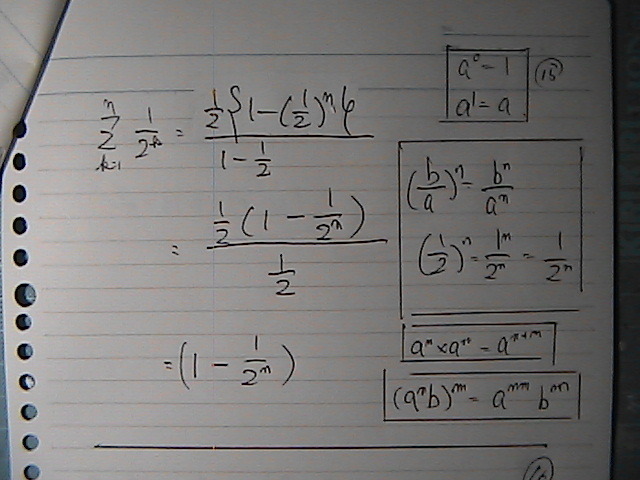 a⁰ = 1
a¹ = a
(15)
∑_{k=1}^{n} 1/2^k = ½{1 − (½)ⁿ} / (1 − ½)
= ½(1 − 1/2ⁿ) / ½
= (1 − 1/2ⁿ)
(b/a)ⁿ = bⁿ/aⁿ
(1/2)ⁿ = 1ⁿ/2ⁿ = 1/2ⁿ
aⁿ × aᵐ = aⁿ⁺ᵐ
(aⁿb)ᵐ = aⁿᵐ bᵐ